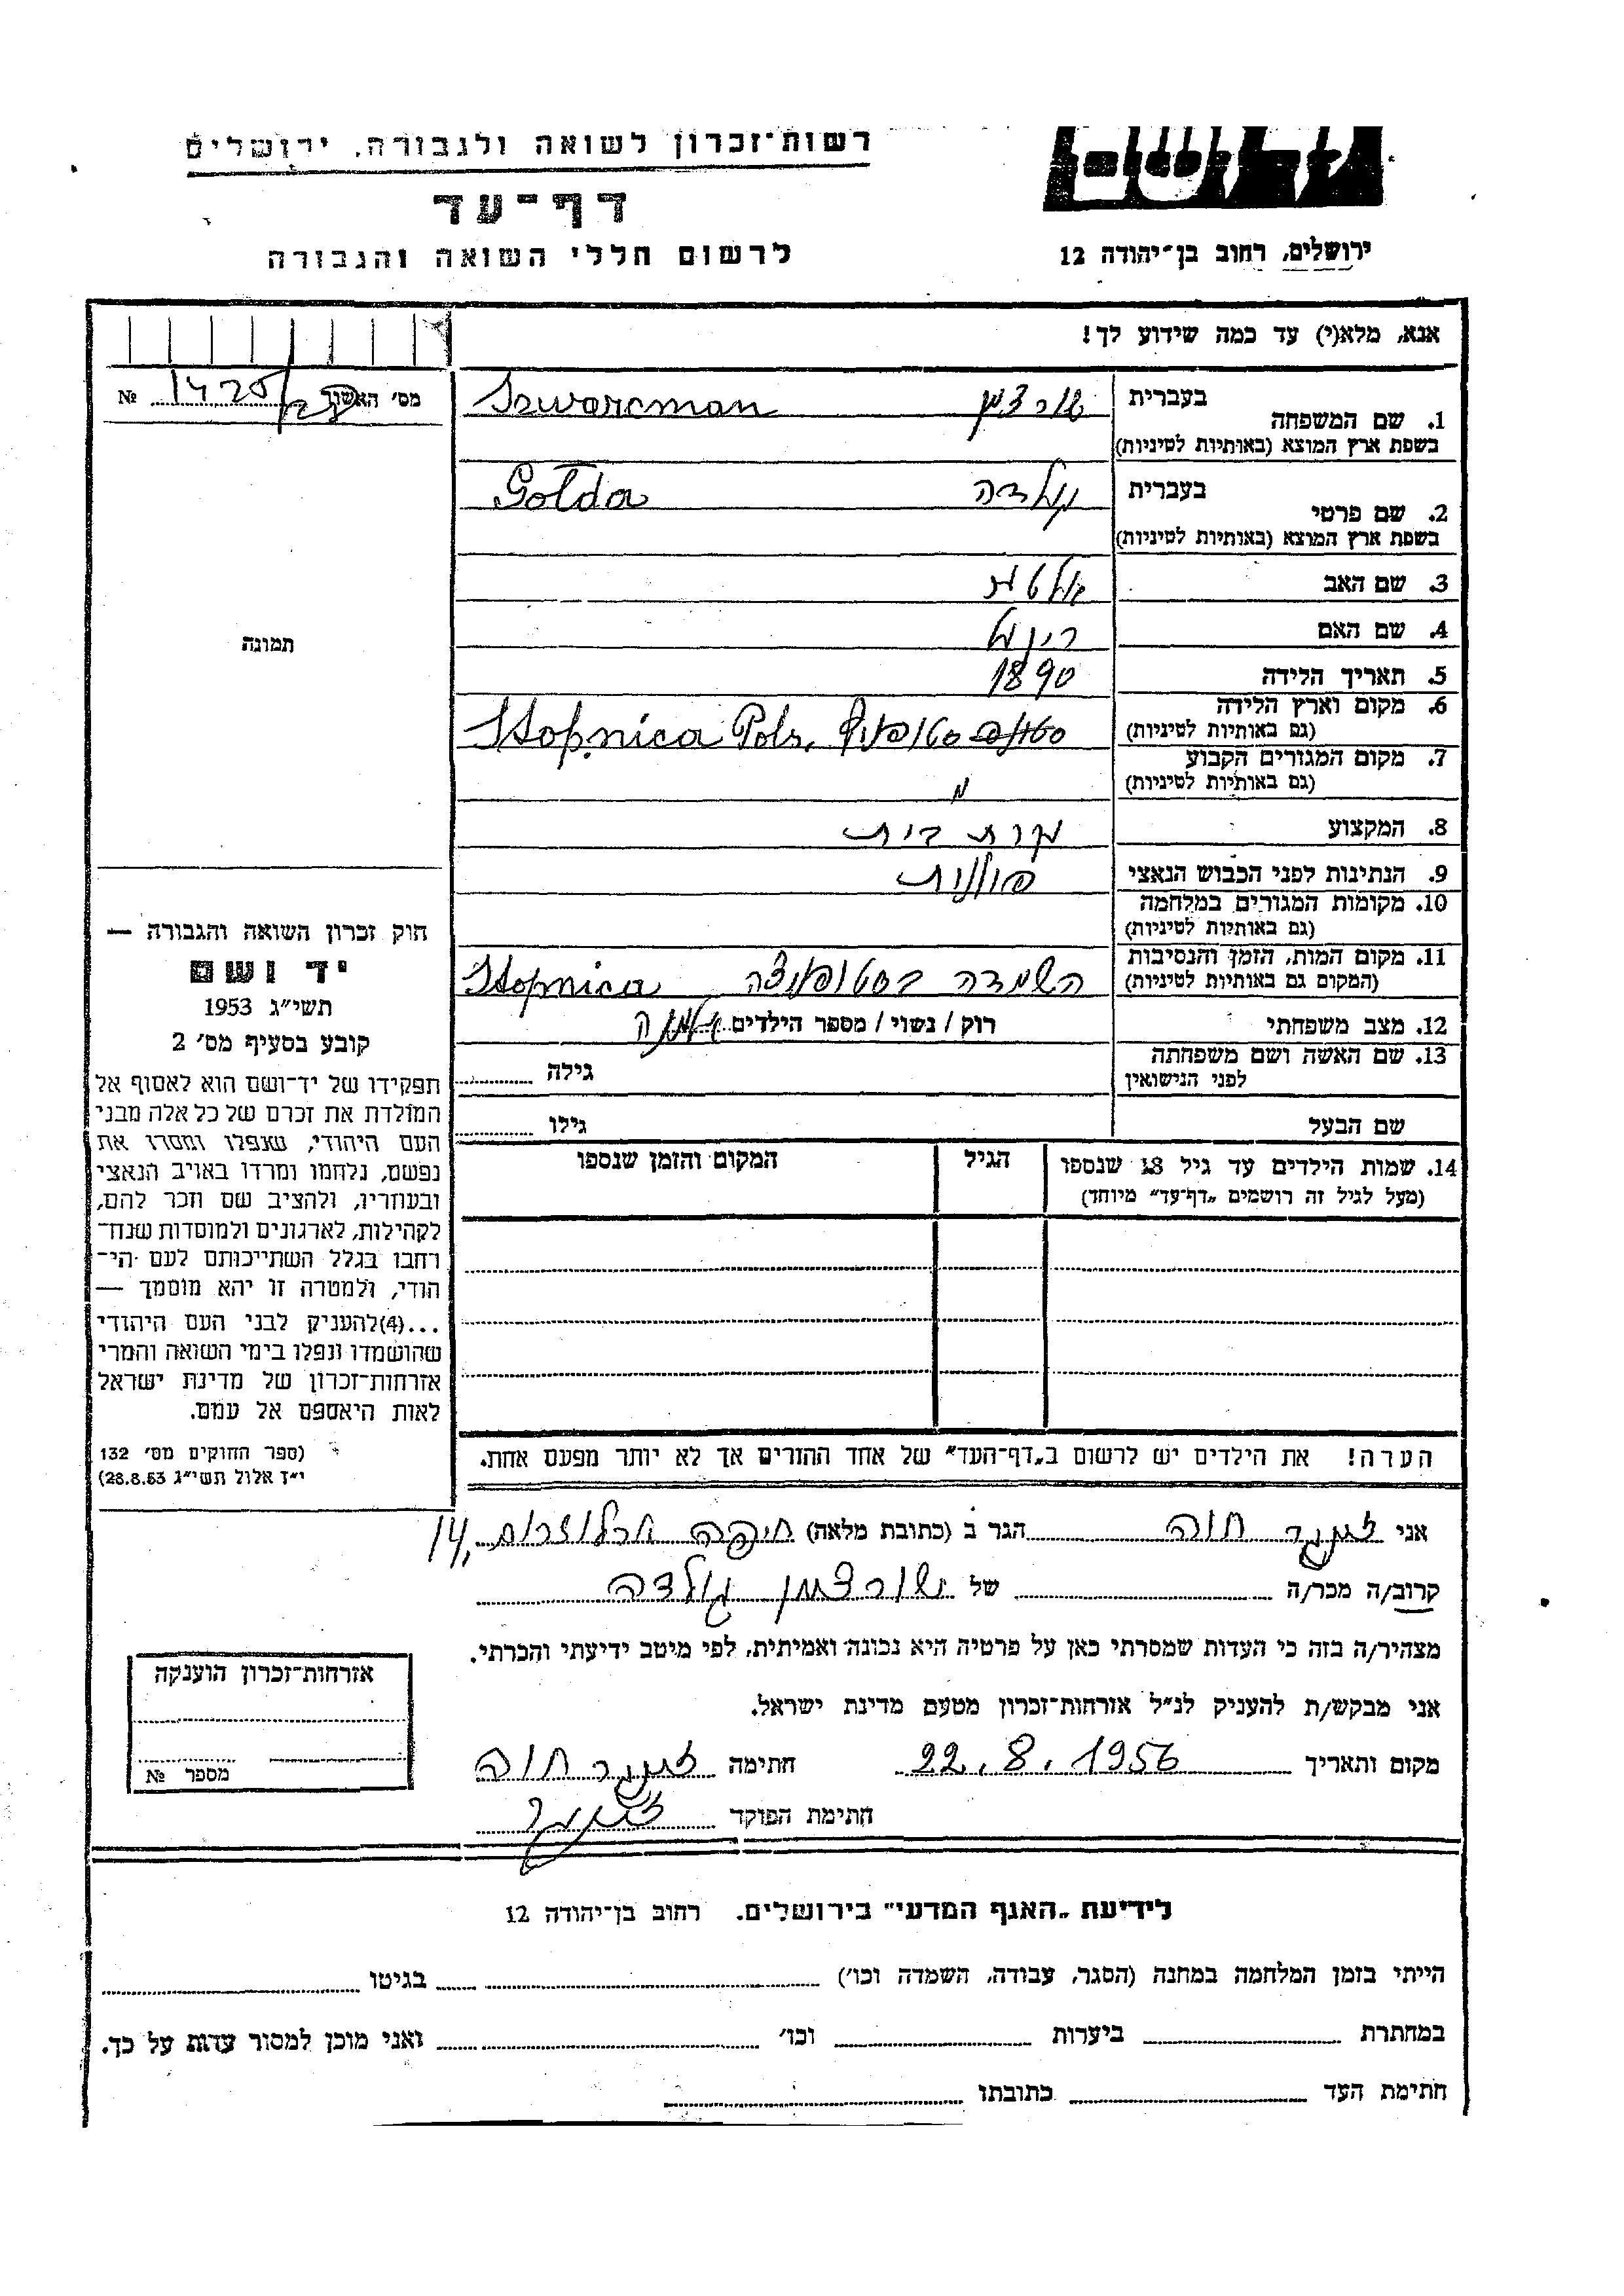 רשות־זכרון לשואה ולגבורה, ירושלים
דף־עד
לרשום חללי השואה והגבורה
ידושם
ירושלים, רחוב בן־יהודה 12
אנא, מלא(י) עד כמה שידוע לך!
מס' האשור № 1425
1. שם המשפחה בעברית שורצמן Szwarcman
בשפת ארץ המוצא (באותיות לטיניות)
2. שם פרטי בעברית גולדה Golda
בשפת ארץ המוצא (באותיות לטיניות)
3. שם האב
4. שם האם רייזל
5. תאריך הלידה 1890
6. מקום וארץ הלידה Stopnica Pols.
(גם באותיות לטיניות)
7. מקום המגורים הקבוע
(גם באותיות לטיניות)
8. המקצוע עקרת בית
9. הנתינות לפני הכבוש הנאצי פולנית
10. מקומות המגורים במלחמה
(גם באותיות לטיניות)
11. מקום המות, הזמן והנסיבות השמדה בסטופניצה Stopnica
(המקום גם באותיות לטיניות)
12. מצב משפחתי רוק / נשוי / מספר הילדים אלמנה
13. שם האשה ושם משפחתה גילה
לפני הנישואין
שם הבעל גילו
14. שמות הילדים עד גיל 18 שנספו הגיל המקום והזמן שנספו
(מעל לגיל זה רושמים „דף־עד” מיוחד)
הערה! את הילדים יש לרשום ב„דף־העד” של אחד ההורים אך לא יותר מפעם אחת.
תמונה
חוק זכרון השואה והגבורה —
יד ושם
תשי״ג 1953
קובע בסעיף מס' 2
תפקידו של יד־ושם הוא לאסוף אל
המולדת את זכרם של כל אלה מבני
העם היהודי, שנפלו ומסרו את
נפשם, נלחמו ומרדו באויב הנאצי
ובעוזריו, ולהציב שם וזכר להם,
לקהילות, לארגונים ולמוסדות שנח־
רחבו בגלל השתייכותם לעם הי־
הודי, ולמטרה זו יהא מוסמך —
...(4)להעניק לבני העם היהודי
שהושמדו ונפלו בימי השואה והמרי
אזרחות־זכרון של מדינת ישראל
לאות היאספם אל עמם.
(ספר החוקים מס' 132
י״ז אלול תשי״ג 28.8.53)
אני חוה הגר ב (כתובת מלאה) חיפה 14,
קרוב/ה מכר/ה של שורצמן גולדה
מצהיר/ה בזה כי העדות שמסרתי כאן על פרטיה היא נכונה ואמיתית, לפי מיטב ידיעתי והכרתי.
אני מבקש/ת להעניק לנ״ל אזרחות־זכרון מטעם מדינת ישראל.
מקום ותאריך 22.8.1956 חתימה חוה
חתימת הפוקד
אזרחות־זכרון הוענקה
מספר №
לידיעת „האגף המדעי” בירושלים. רחוב בן־יהודה 12
הייתי בזמן המלחמה במחנה (הסגר, עבודה, השמדה וכו') בגיטו
במחתרת ביערות וכו' ואני מוכן למסור עדות על כך.
חתימת העד כתובתו